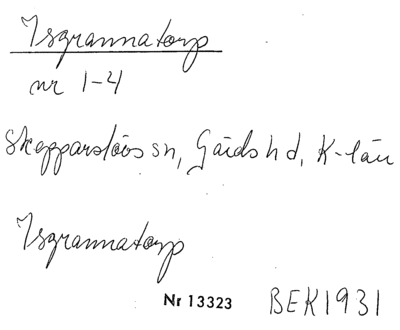 Isgrannatorp
nr 1-4
Skepparslövs sn, Gärds hd, K-län
Isgrannatorp
Nr 13323 BEK1931